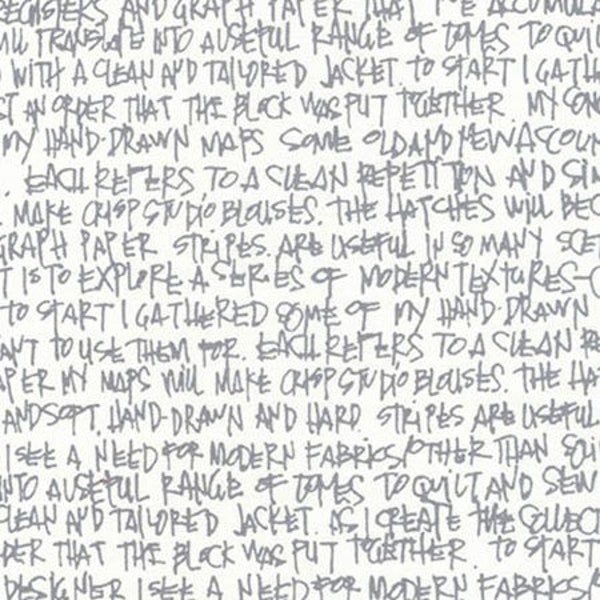 AND GRAPH PAPER THAT I'VE ACCUMULA
WILL TRANSLATE INTO A USEFUL RANGE OF TOMES TO QUIL
WITH A CLEAN AND TAILORED JACKET. TO START I GATH
ST AN ORDER THAT THE BLOCK WAS PUT TOGETHER. MY CON
MY HAND-DRAWN MAPS SOME OLD AND NEW ACCOUN
. EACH REFERS TO A CLEAN REPETITION AND SIM
. MAKE CRISP STUDIO BLOUSES. THE HATCHES WILL BEC
GRAPH PAPER STRIPES. ARE USEFUL IN SO MANY SCE
T IS TO EXPLORE A SERIES OF MODERN TEXTURES-C
TO START I GATHERED SOME OF MY HAND-DRAWN
ANT TO USE THEM FOR. EACH REFERS TO A CLEAN RE
APER MY MAPS WILL MAKE CRISP STUDIO BLOUSES. THE HA
AND SOFT. HAND-DRAWN AND HARD STRIPES ARE USEFUL
I SEE A NEED FOR MODERN FABRICS/OTHER THAN SOLI
INTO A USEFUL RANGE OF TOMES TO QUILT AND SEW
CLEAN AND TAILORED JACKET. AS I CREATE THE COLLECT
DER THAT THE BLOCK WAS PUT TOGETHER. TO START
DESIGNER I SEE A NEED FOR MODERN FABRICS/